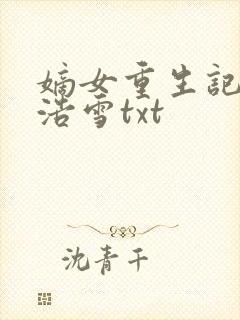 嫡女重生記
浩雪txt
沈青千